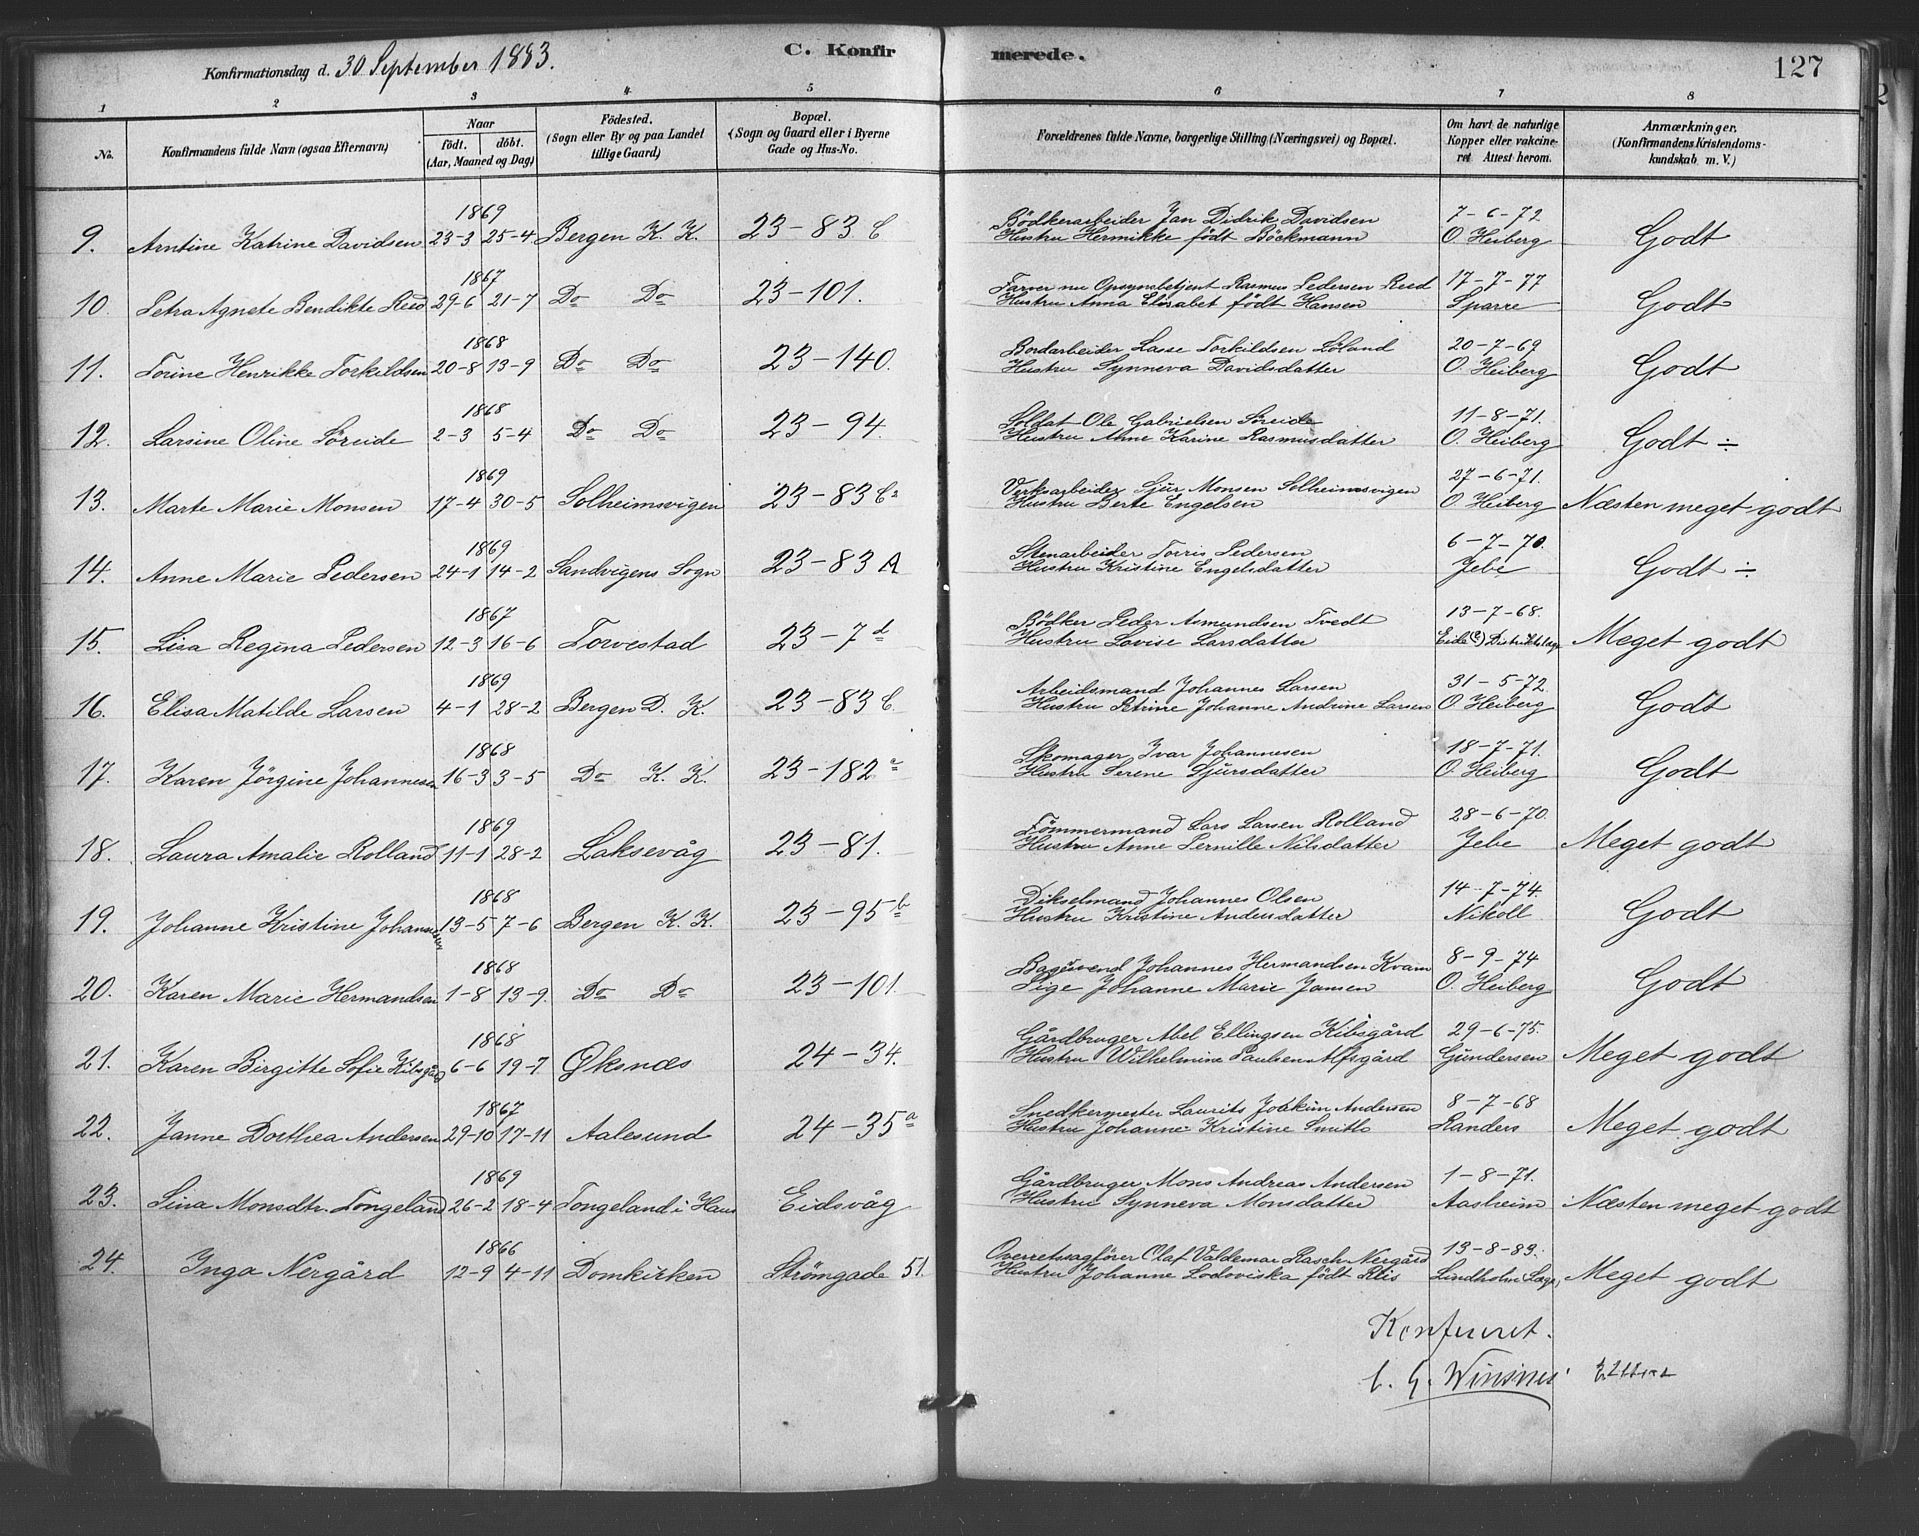 Konfirmationsdag d. 30 September 1883.
C. Konfirmerede.
127
1 2 3 4 5 6 7 8
No.
Konfirmandens fulde Navn (ogsaa Efternavn)
Naar
født. döbt.
(Aar, Maaned og Dag)
Födested.
(Sogn eller By og paa Landet
tillige Gaard)
Bopæl.
(Sogn og Gaard eller i Byerne
Gade og Hus-No.
Forældrenes fulde Navne, borgerlige Stilling (Næringsvei) og Bopæl.
Om havt de naturlige
Kopper eller vakcine-
ret Attest herom.
Anmærkninger.
(Konfirmandens Kristendoms-
kundskab m. V.)
1869 Bödkerarbeider Jan Didrik Davidsen 7-6-72
9. Arntine Katrine Davidsen 23-3 25-4 Bergen K. K. 23-83 C Hustru Hermikke født Böckmann O. Heiberg Godt
1867 Farver nu Opsynsbetjent Rasmus Pedersen Reed 17-7-77
10. Petra Agnete Bendikte Reed 29-6 21-7 Do Do 23-101. Hustru Anna Elisabet født Hansen Sparre Godt
1868 Bordarbeider Lasse Torkildsen Löland 20-7-69
11. Torine Henrikke Torkildsen 20-8 13-9 Do Do 23-140. Hustru Synneva Davidsdatter O. Heiberg Godt
1868 Soldat Ole Gabrielsen Söreide 11-8-71.
12. Larsine Oline Söreide 2-3 5-4 Do Do 23-94. Hustru Anne Karine Rasmusdatter O. Heiberg Godt ÷
1869 Verksarbeider Sjur Monsen Solheimsvigen 27-6-71.
13. Marte Marie Monsen 17-4 30-5 Solheimsvigen 23-83 C2 Hustru Berte Engelsen O. Heiberg Næsten meget godt
1869 Stenarbeider Torris Pedersen 6-7-70.
14. Anne Marie Pedersen 24-1 14-2 Sandvigens Sogn 23-83 A Hustru Kristine Engelsdatter Jebe Godt ÷
1867 Bödker Peder Asmundsen Tvedt 13-7-68.
15. Lisa Regina Pedersen 12-3 16-6 Torvestad 23-7 d Hustru Lovise Larsdatter Eide (?) Distriktslæge Meget godt
1869 Arbeidsmand Johannes Larsen 31-5-72.
16. Elisa Matilde Larsen 4-1 28-2 Bergen D. K. 23-83 C. Hustru Petrine Johanne Andrine Larsen O. Heiberg Godt
1868 Skomager Ivar Johannesen 18-7-71.
17. Karen Jörgine Johannesen 16-3 3-5 Do K. K. 23-182 a Hustru Serene Sjursdatter O. Heiberg Godt
1869 Tömmermand Lars Larsen Rolland 28-6-70.
18. Laura Amalie Rolland 11-1 28-2 Laksevåg 23-81. Hustru Anne Pernille Nilsdatter Jebe Meget godt
1868 Dikselmand Johannes Olsen 14-7-74.
19. Johanne Kristine Johannesen 13-5 7-6 Bergen K. K. 23-95 b Hustru Kristine Andersdatter Nikoll Godt
1868 Bagersvend Johannes Hermandsen Kvam 8-9-74
20. Karen Marie Hermandsen 1-8 13-9. Do Do 23-101. Pige Johanne Marie Jansen O. Heiberg Godt
1868 Gårdbruger Abel Ellingsen Kibsgård 29-6-75.
21. Karen Birgitte Sofie Kibsgård 6-6 19-7 Øksnæs 24-34. Hustru Wilhelmine Paulsen Alfsgård Gundersen Meget godt
1867 Snedkermester Laurits Joakim Andersen 8-7-68
22. Janne Dorthea Andersen 29-10 17-11 Aalesund 24-35 a Hustru Johanne Kristine Smith Randers Meget godt
1869 Gårdbruger Mons Andreas Andersen 1-8-71.
23. Sina Monsdtr. Tongeland 26-2 18-4 Tongeland i Haus Eidsvåg Hustru Synneva Monsdatter Aasheim Næsten meget godt
1866 Overretssagförer Olaf Valdemar Rasch Nergård 13-8-83.
24. Inga Nergård 12-9 4-11 Domkirken Strömgade 51. Hustru Johanne Lodoviska født Riis Lindholm Læge Meget godt
Konfereret.
C. G. Winsnes